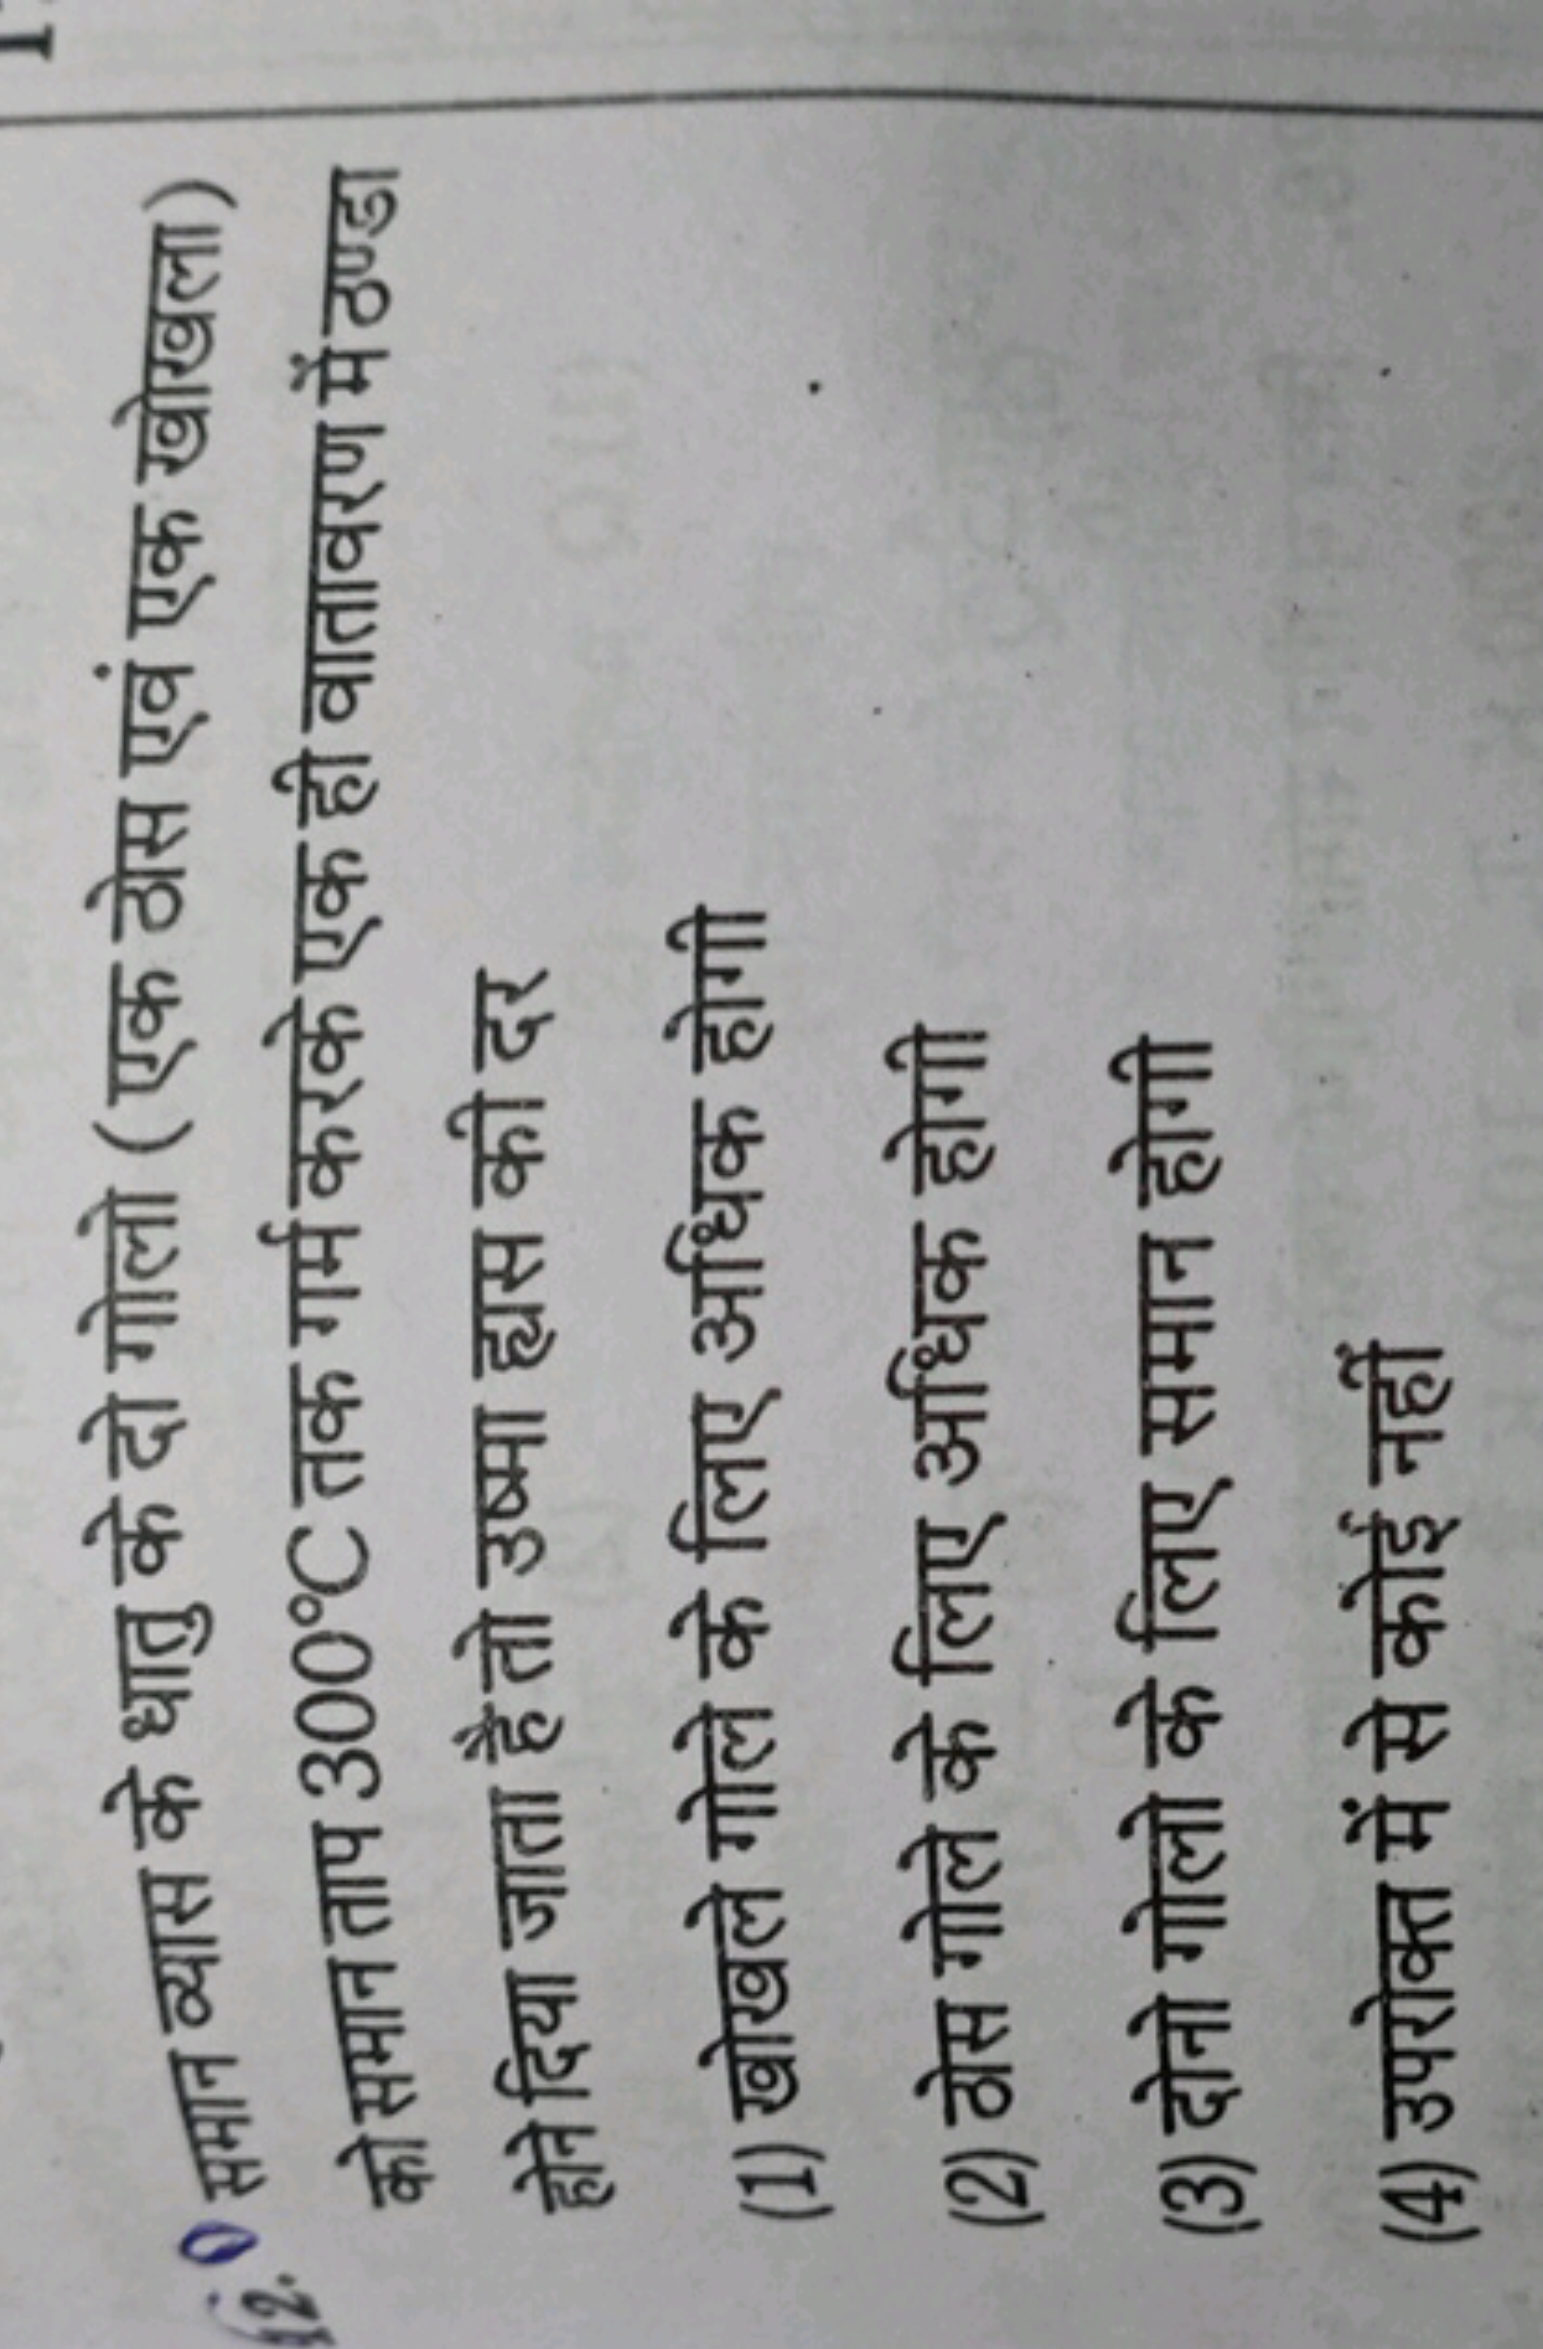 12. समान व्यास के धातु के दो गोलो (एक ठोस एवं एक खोखला)
को समान ताप 300°C तक गर्म करके एक ही वातावरण में ठण्डा
होने दिया जाता है तो उष्मा ह्रास की दर
(1) खोखले गोले के लिए अधिक होगी
(2) ठोस गोले के लिए अधिक होगी
(3) दोनो गोलो के लिए समान होगी
(4) उपरोक्त में से कोई नहीं